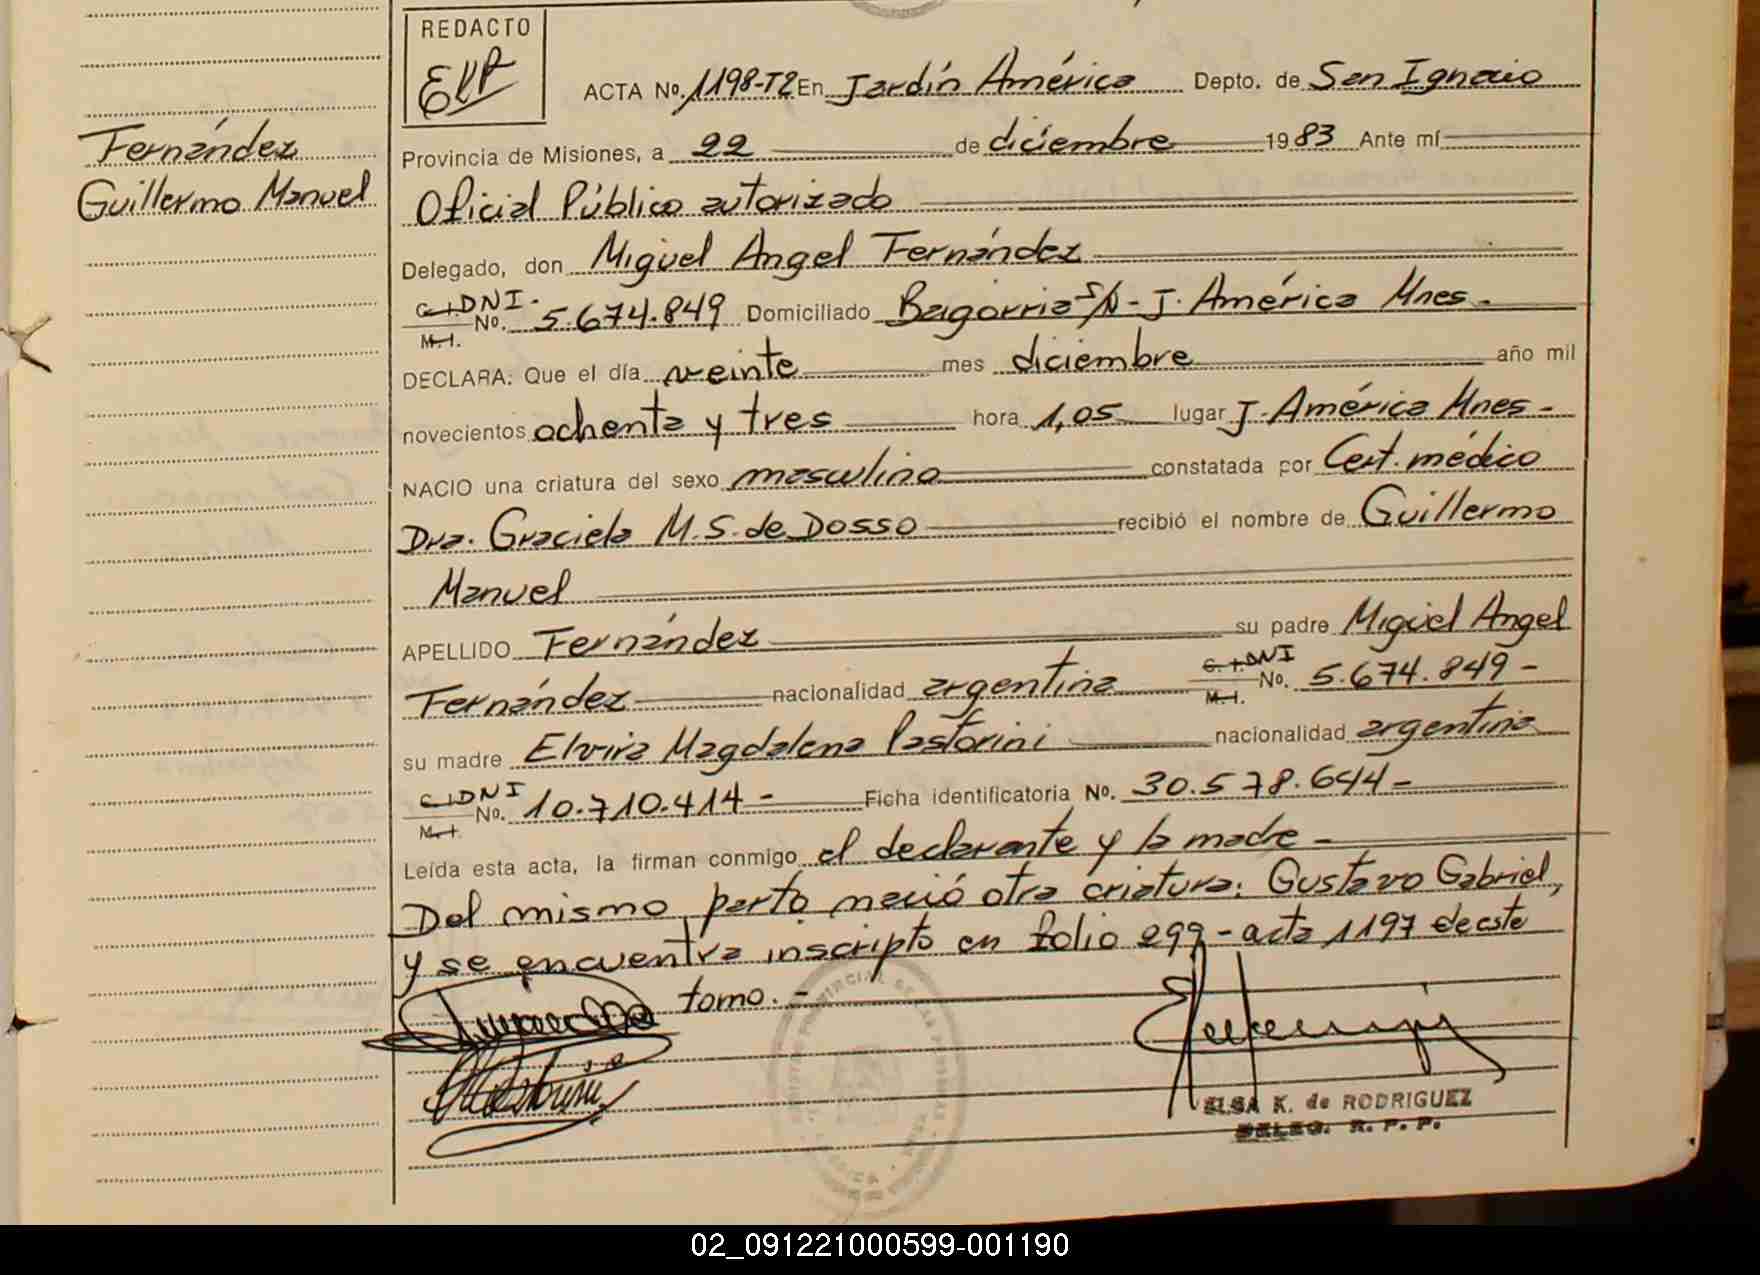 REDACTO
ACTA No. 1198-T2 En Jardín América Depto. de San Ignacio
Fernández
Guillermo Manuel
Provincia de Misiones, a 22 de diciembre 1983 Ante mí
Oficial Público autorizado
Delegado, don Miguel Angel Fernández
C.I. DNI.
M.I. No. 5.674.849 Domiciliado Bagorria S/N - J. América Mnes.
DECLARA: Que el día veinte mes diciembre año mil
novecientos ochenta y tres hora 1,05 lugar J. América Mnes -
NACIO una criatura del sexo masculino constatada por Cert. médico
Dra. Graciela M.S. de Dosso recibió el nombre de Guillermo
Manuel
APELLIDO Fernández su padre Miguel Angel
Fernández nacionalidad argentina C.I. DNI M.I. No. 5.674.849 -
su madre Elvira Magdalena Pastorini nacionalidad argentina
C.I. DNI M.I. No. 10.710.414 - Ficha identificatoria No. 30.578.644 -
Leída esta acta, la firman conmigo el declarante y la madre -
Del mismo parto nació otra criatura: Gustavo Gabriel,
y se encuentra inscripto en folio 299 - acta 1197 de este
tomo. -
ELSA K. de RODRIGUEZ
DELEG. R. P. P.
02_091221000599-001190